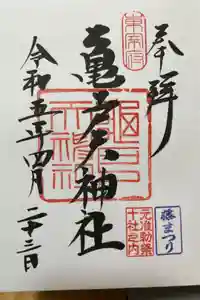 奉拝
東宰府
亀戸天神社
令和五年四月二十三日
藤まつり
元准勅祭
十社之内